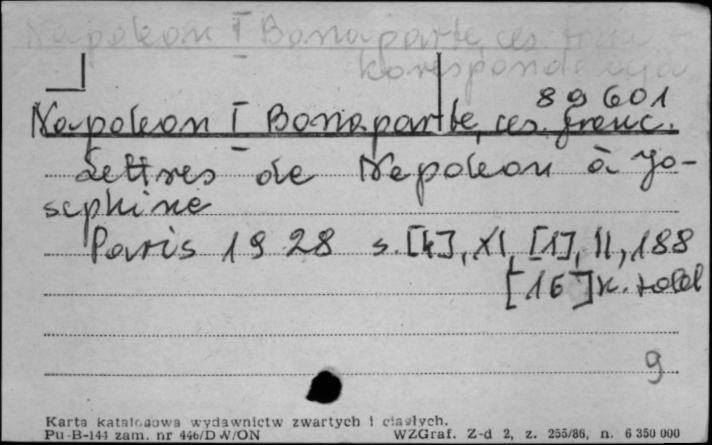 Napoleon I Bonaparte, ces. franc. -
korespondencja
89601
Napoleon I Bonaparte, ces. franc.
Lettres de Napoleon à Jo-
sephine
Paris 1928 s. [4], XI, [1], II, 188
[16] k. tabl
9
Karta katalogowa wydawnictw zwartych i ciągłych.
Pu-B-144 zam. nr 446/DW/ON WZGraf. Z-d 2, z. 255/86, n. 6 350 000